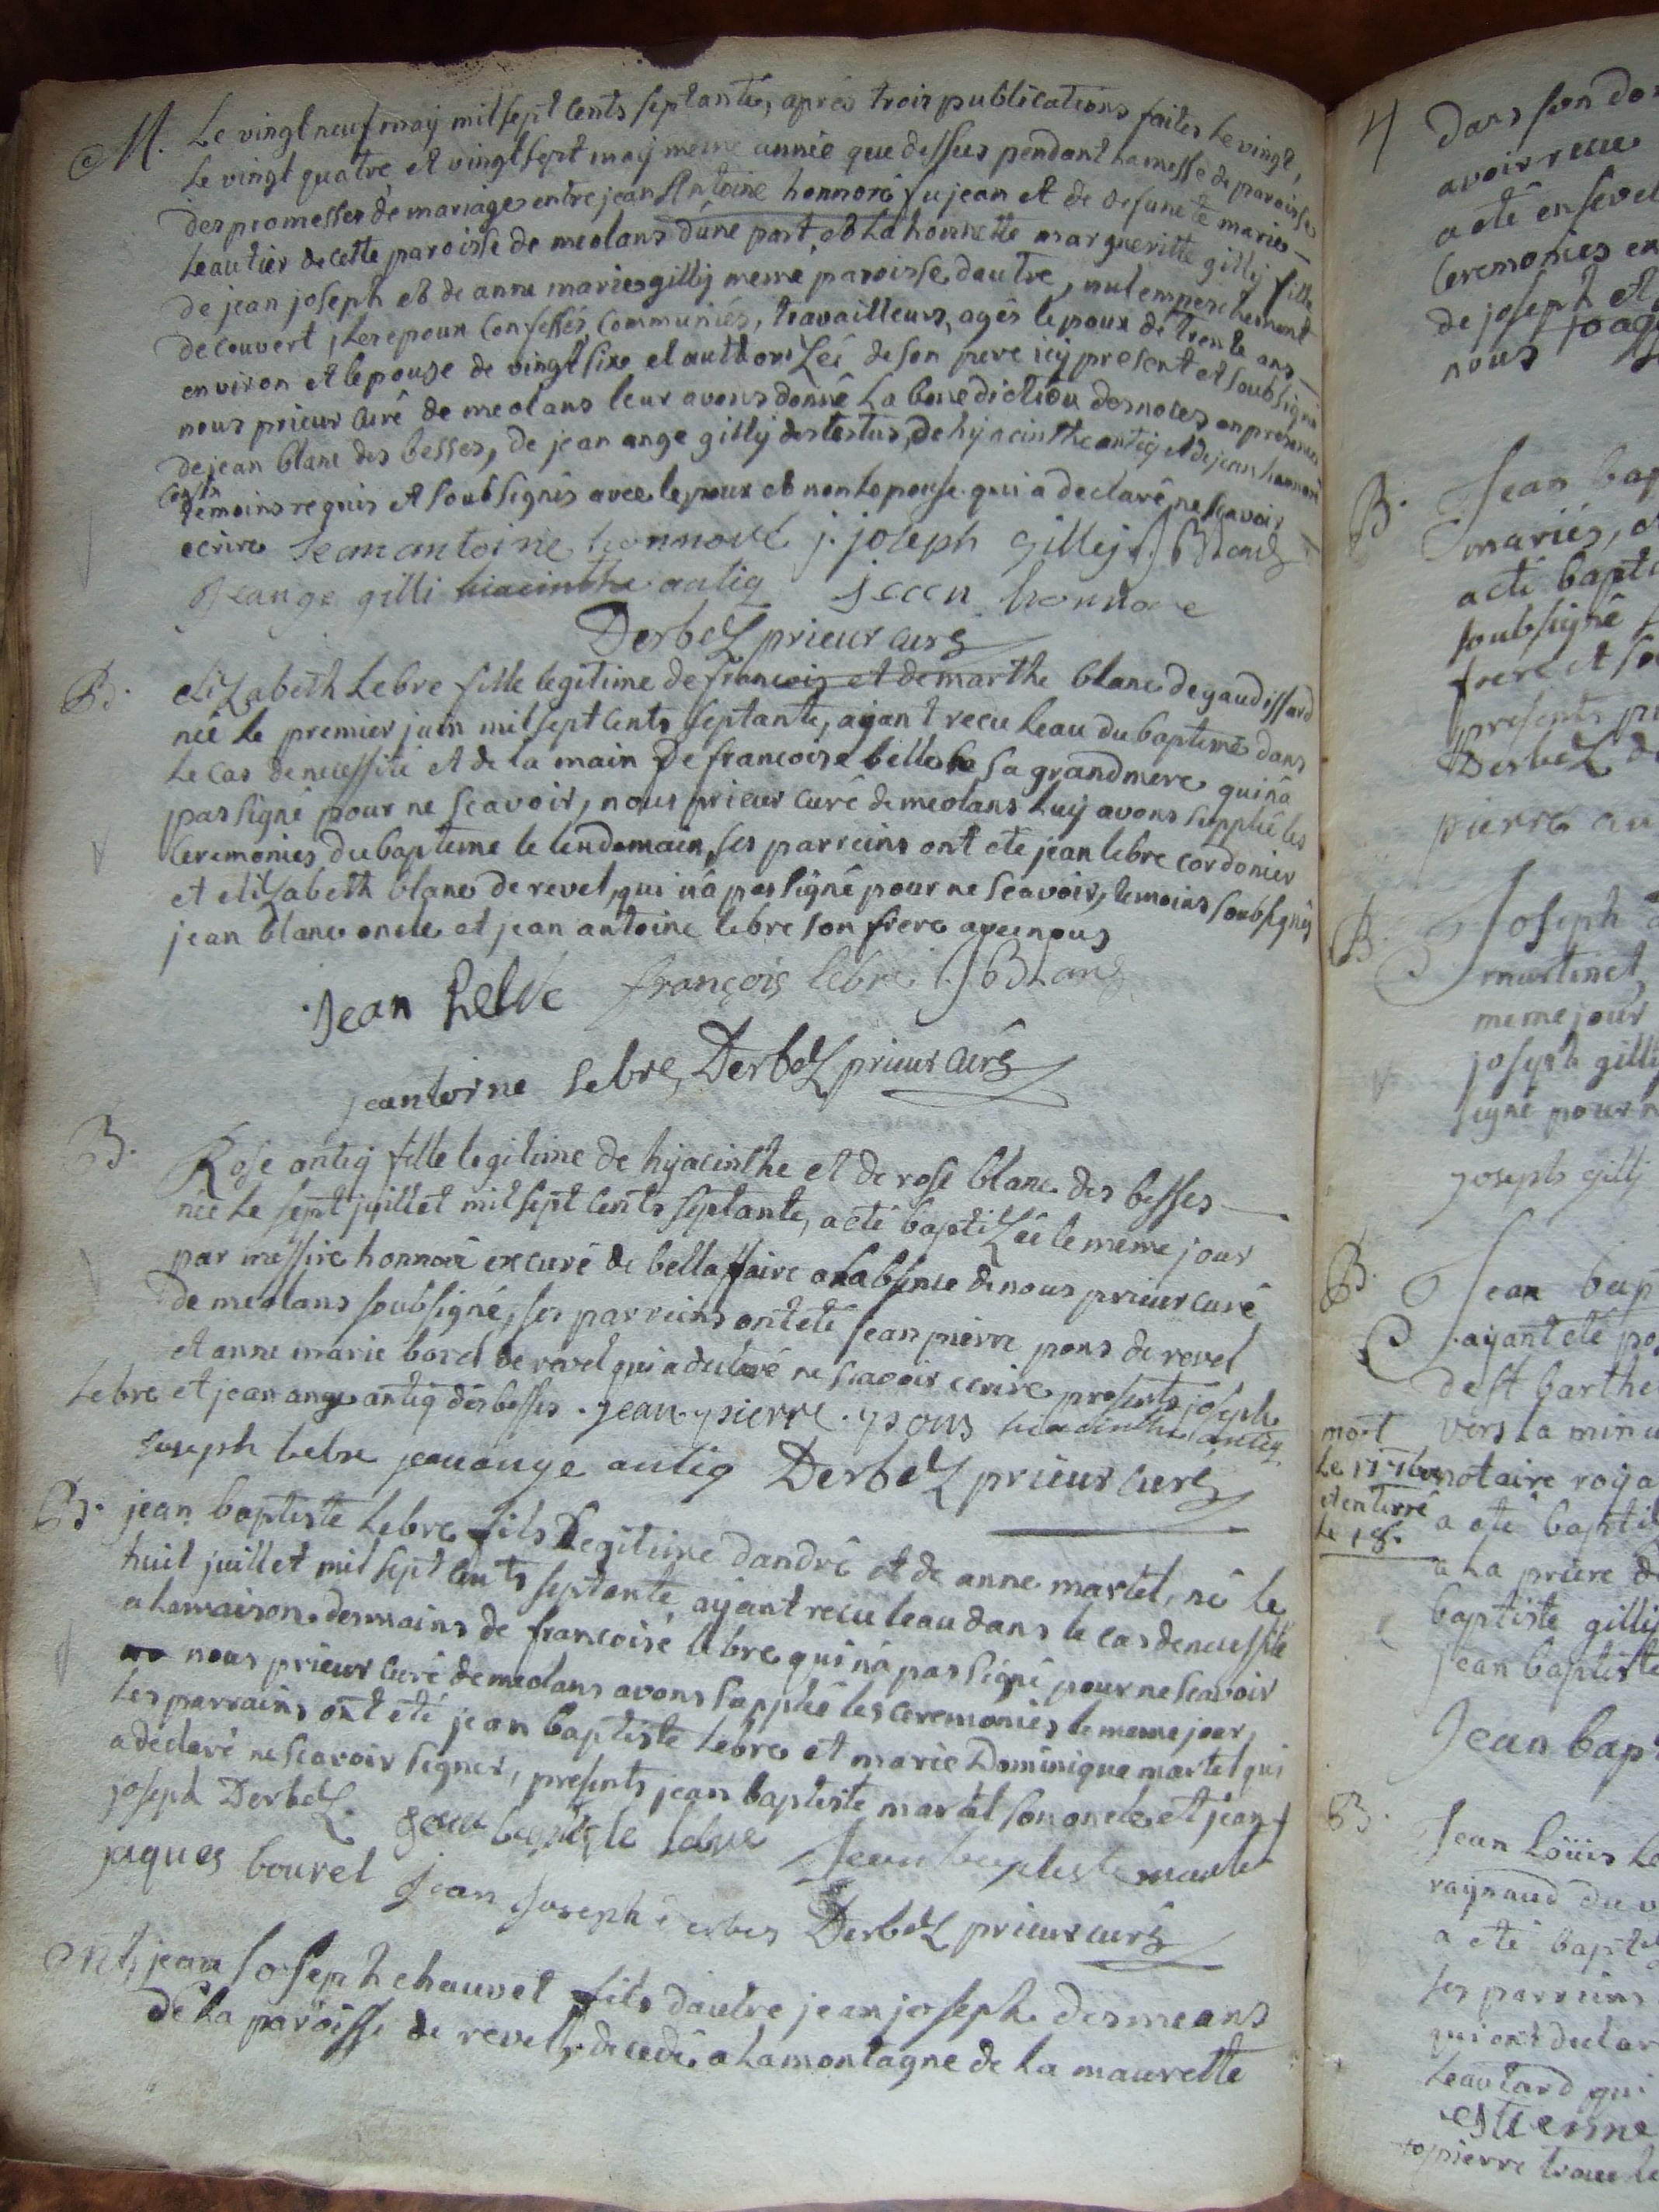 M. Le vingt neuf may mil sept cents septante, aprés trois publications faites le vingt,
le vingt quatre et vingt sept may meme année que dessus pendant la messe de paroisse
des promesses de mariage entre jean Antoine honnoré fu jean et de defuncte marie
leautier de cette paroisse de meolans dune part, et la honnette margueritte gilly fille
de jean joseph et de anne marie gilly meme paroisse dautre, nul empeschement
decouvert, les epoux confessés, communiés, travailleurs, agés lepoux de trente ans
environ et lepouse de vingt six et authorizéé de son pere icy present et soubsigné
nous prieur curé de meolans leur avons donné la benediction des noces en presence
de jean blanc des besses, de jean ange gilly des testus, de hyacinthe antiq et de jean honnoré
temoins requis et soubsignés avec lepoux et non lepouse qui a declaré ne scavoir
ecrire jean antoine honnoré j. joseph gilley J. Blanc
jeange gilli hiacinthe antiq jean honnore
Derbez prieur curé
B. elizabeth Lebre fille legitime de francois et de marthe blanc de gaudissard
née le premier juin mil sept cents septante, ayant recu leau du bapteme dans
le cas de necessité et de la main de francoise belle sa grandmere qui nâ
pas signé pour ne scavoir, nous prieur curé de meolans luy avons supplié les
ceremonies du bapteme le lendemain, ses parreins ont eté jean lebre cordonier
et elizabeth blanc de revel, qui nâ pas signé pour ne scavoir, temoins soubsignés
jean blanc oncle et jean antoine lebre son frere avec nous
jean Lebre françois lebre J BLanc
jeantoine Lebre, Derbez prieur curé
B. Rose antiq fille legitime de hyacinthe et de rose blanc des besses
née le sept juillet mil sept cents septante, a eté baptizéé le meme jour
par messire honnoré excuré de bellaffaire a labsence de nous prieur curé
de meolans soubsigné, ses parreins ont eté jean pierre pons de revel
et anne marie borel de revel qui a declaré ne scavoir ecrire, presents joseph
Lebre et jean ange antiq des besses. jean pierre pons hiacinthe antiq
joseph lebre jeanange antiq Derbez prieur curé
B. jean baptiste Lebre fils Legitime dandré et de anne martel, né le
huit juillet mil sept cents septante ayant recu leau dans le cas de necessité
a la maison des mains de francoise lebre qui nâ pas signé pour ne scavoir
nous prieur curé de meolans avons supplié les ceremonies le meme jour,
les parrains ont eté jean baptiste lebre et marie Dominique martel qui
a declaré ne scavoir signer, presents jean baptiste martel son oncle et jean
joseph Derbez. jean baptiste lebre Jean baptiste martel
jaques bourel jean joseph derbes Derbez prieur curé
jean joseph chauvet fils dautre jean joseph des means
de la paroisse de revel, decedé a la montagne de la maurette
4 dans son
avoir recu
a eté ensevel
ceremonies en
de joseph et
nous
B. Jean bap
mariés,
a eté bapti
soubsigné
frere et
presents
Derbez
pierre au
B. Joseph
martinet,
meme jour
joseph gilly
signé pour n
joseph gilly
B. Jean bap
ayant eté
de st barthe
vers la minu
notaire roya
a eté bapti
a la priere de
baptiste gilly
jean baptiste
mort
et enterré
le 18.
Jean bapt
B. Jean Loüis Le
raynaud du
a eté bapti
ses parreins
qui ont declar
Leautard qui
estienne
pierre